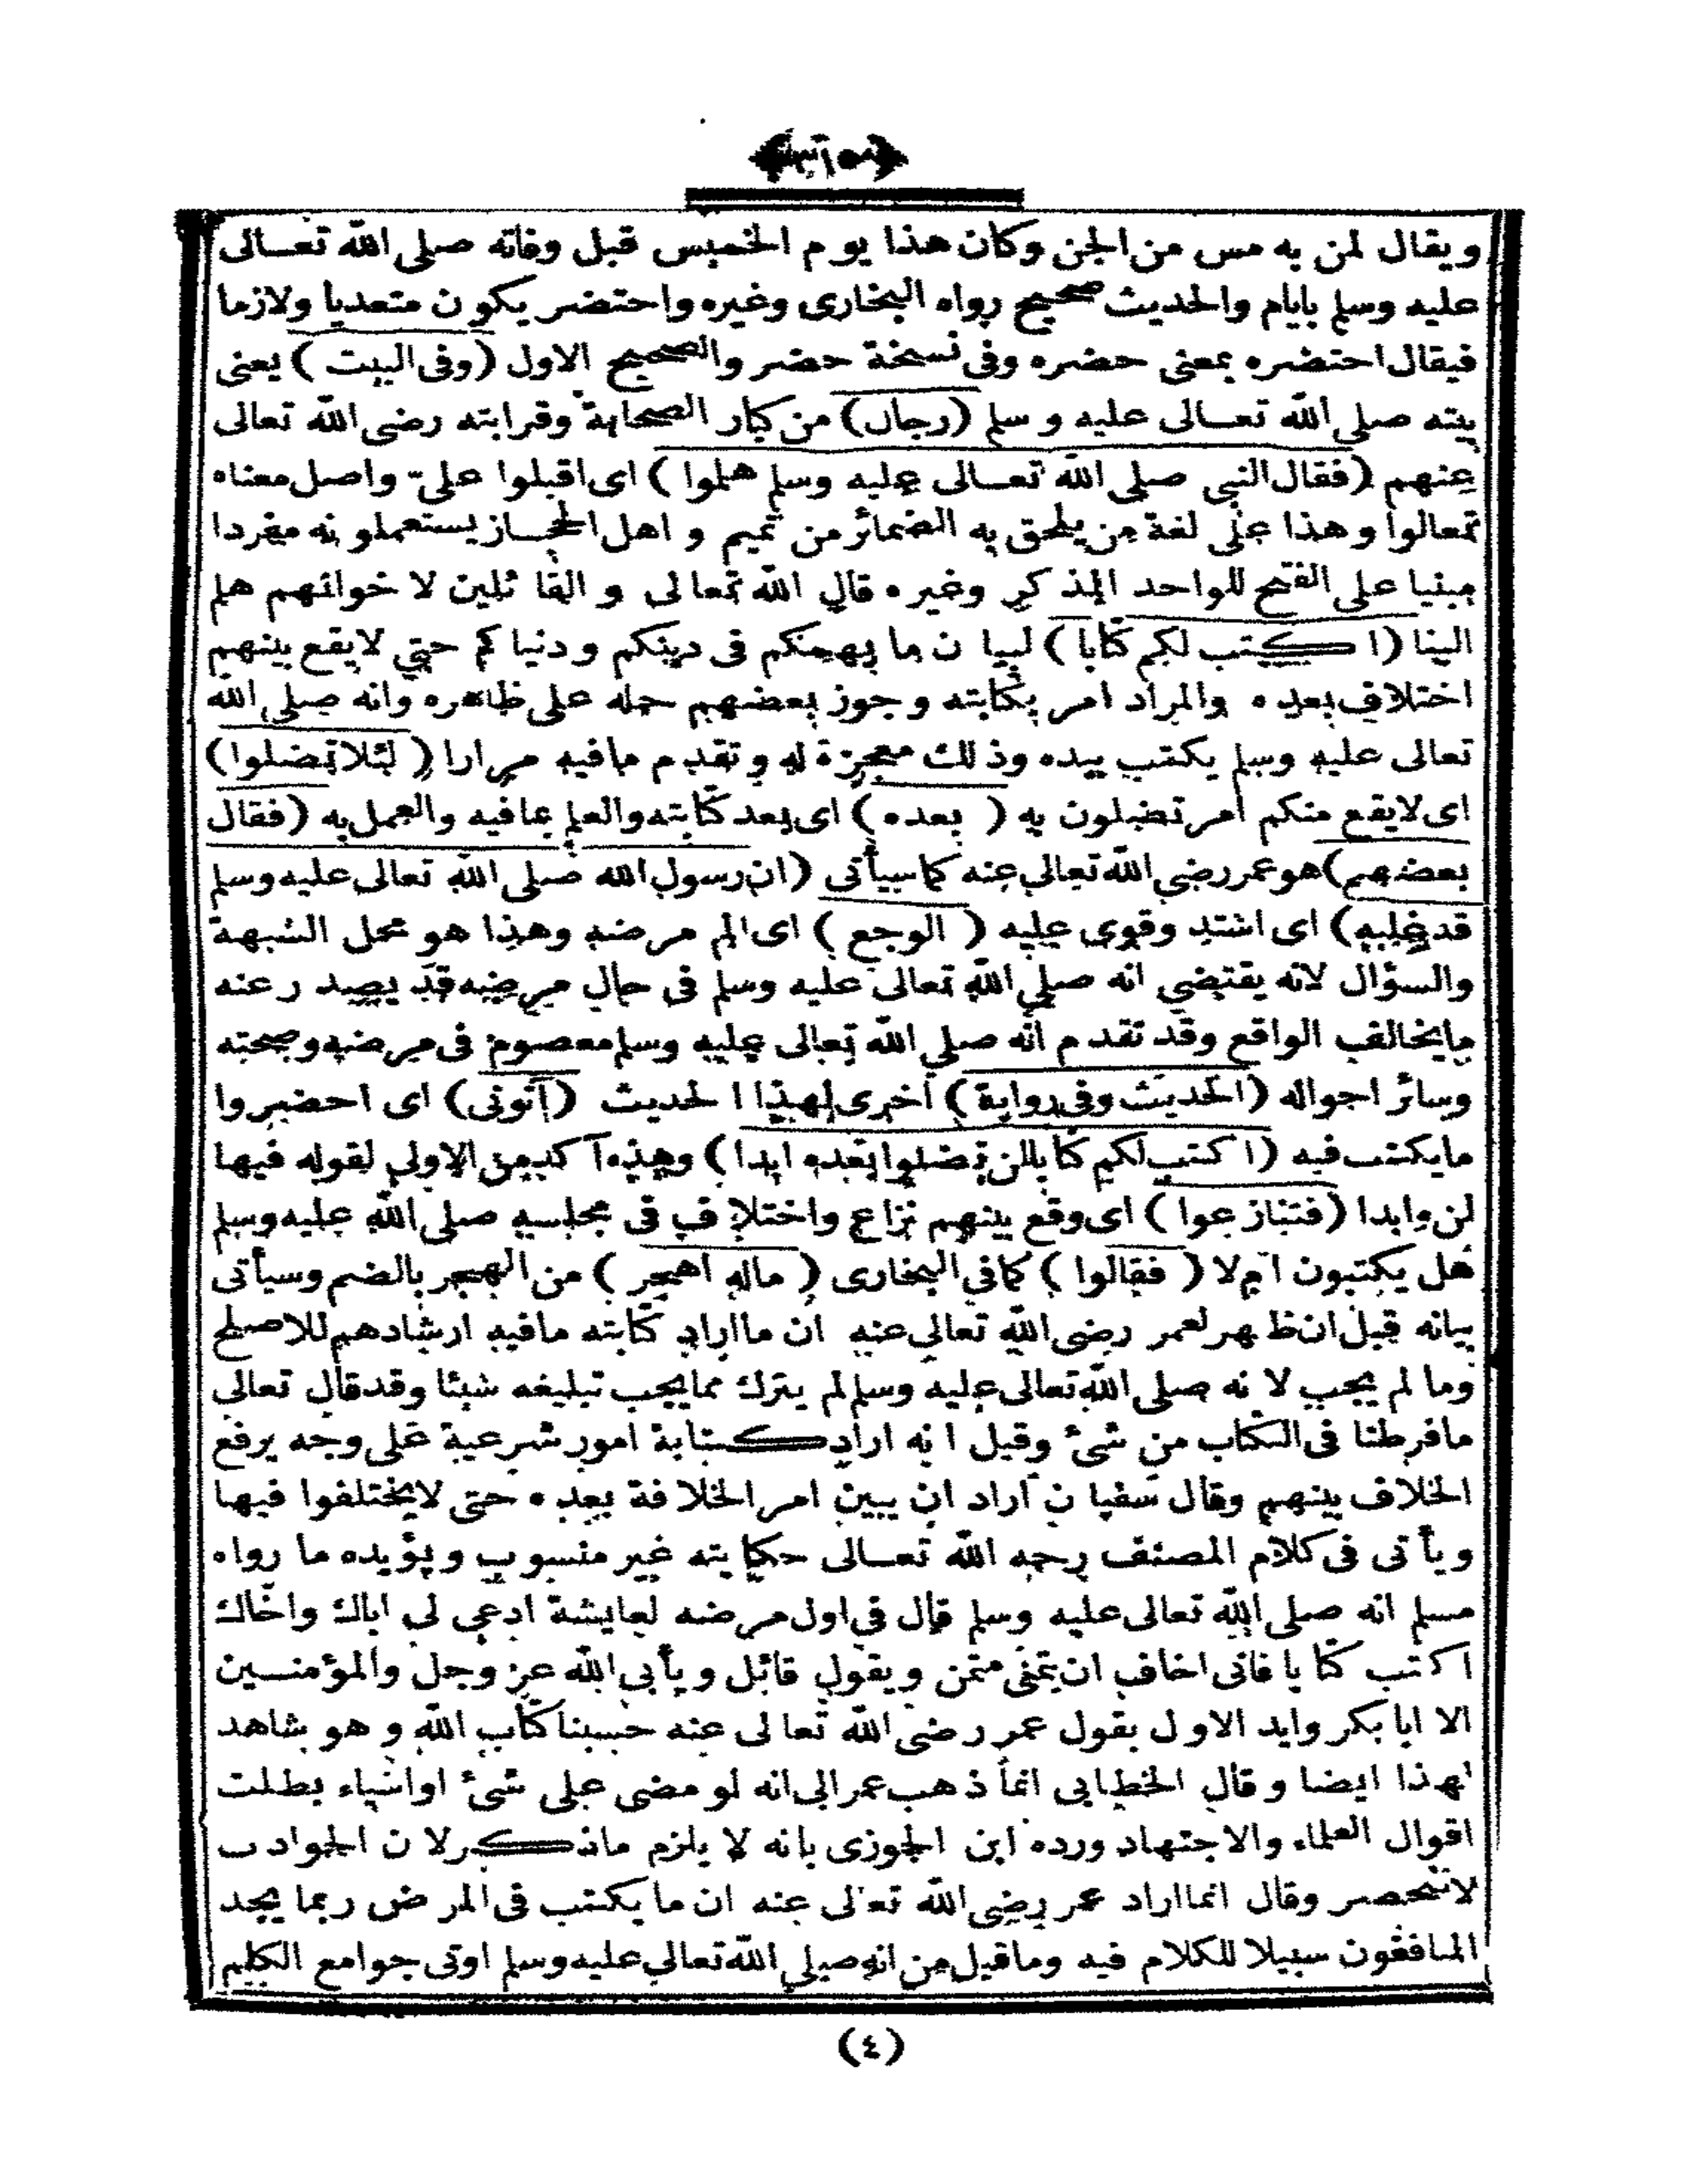 ويقال لمن به مس من الجن وكان هذا يوم الخميس قبل وفاته صلى الله تعالى
عليه وسلم بايام والحديث صحيح رواه البخارى وغيره واحتضر يكون متعديا ولازما
فيقال احتضره بمعنى حضره وفى نسخة حضر والصحيح الاول (وفى البيت) يعنى
بيته صلى الله تعالى عليه وسلم (رجال) من كبار الصحابة وقرابته رضى الله تعالى
عنهم (فقال النبى صلى الله تعالى عليه وسلم هلموا) اى اقبلوا علىّ واصل معناه
تعالوا وهذا على لغة من يلحق به الضمائر من تميم و اهل الحجاز يستعملونه مفردا
مبنيا على الفتح للواحد المذكر وغيره قال الله تعالى و القائلين لاخوانهم هلم
الينا (اكتب لكم كتابا) لبيان ما يهمكم فى دينكم ودنياكم حتى لايقع بينهم
اختلاف بعده والمراد امر بكتابته وجوز بعضهم حمله على ظاهره وانه صلى الله
تعالى عليه وسلم يكتب بيده وذلك معجزة له وتقدم مافيه مرارا (لئلا تضلوا)
اى لايقع منكم امر تضلون به (بعده) اى بعد كتابته والعلم بمافيه والعمل به (فقال
بعضهم) هو عمر رضى الله تعالى عنه كما سيأتى (ان رسول الله صلى الله تعالى عليه وسلم
قد غلبه) اى اشتد وقوى عليه (الوجع) اى الم مرضه وهذا هو محل الشبهة
والسؤال لانه يقتضى انه صلى الله تعالى عليه وسلم فى حال مرضه قد يصدر عنه
مايخالف الواقع وقد تقدم انه صلى الله تعالى عليه وسلم معصوم فى مرضه وصحته
وسائر احواله (الحديث وفى رواية) اخرى لهذا الحديث (آتونى) اى احضروا
مايكتب فيه (اكتب لكم كتابا لن تضلوا بعده ابدا) وهذه آكد من الاولى لقوله فيها
لن وابدا (فتنازعوا) اى وقع بينهم نزاع واختلاف فى مجلسه صلى الله عليه وسلم
هل يكتبون ام لا (فقالوا) كما فى البخارى (ماله اهجر) من الهجر بالضم وسيأتى
بيانه قبل ان ظهر لعمر رضى الله تعالى عنه ان مااراد كتابته مافيه ارشادهم للاصلح
وما لم يجب لانه صلى الله تعالى عليه وسلم لم يترك مما يجب تبليغه شيئا وقد قال تعالى
مافرطنا فى الكتاب من شئ وقيل انه اراد كتابة امور شرعية على وجه يرفع
الخلاف بينهم وقال سفيان اراد ان يبين امر الخلافة بعده حتى لايختلفوا فيها
ويأتى فى كلام المصنف رحمه الله تعالى حكايته غير منسوب ويؤيده ما رواه
مسلم انه صلى الله تعالى عليه وسلم قال فى اول مرضه لعايشة ادعى لى اباك واخاك
اكتب كتابا فانى اخاف ان يتمنى متمن ويقول قائل ويأبى الله عز وجل والمؤمنين
الا ابا بكر وايد الاول بقول عمر رضى الله تعالى عنه حسبنا كتاب الله وهو شاهد
لهذا ايضا وقال الخطابى انما ذهب عمر الى انه لو مضى على شئ او اشياء بطلت
اقوال العلماء والاجتهاد ورده ابن الجوزى بانه لا يلزم ماذكر لان الحوادث
لاتنحصر وقال انما اراد عمر رضى الله تعالى عنه ان ما يكتب فى المرض ربما يجد
المنافقون سبيلا للكلام فيه وماقيل من انه صلى الله تعالى عليه وسلم اوتى جوامع الكلم
(٤)